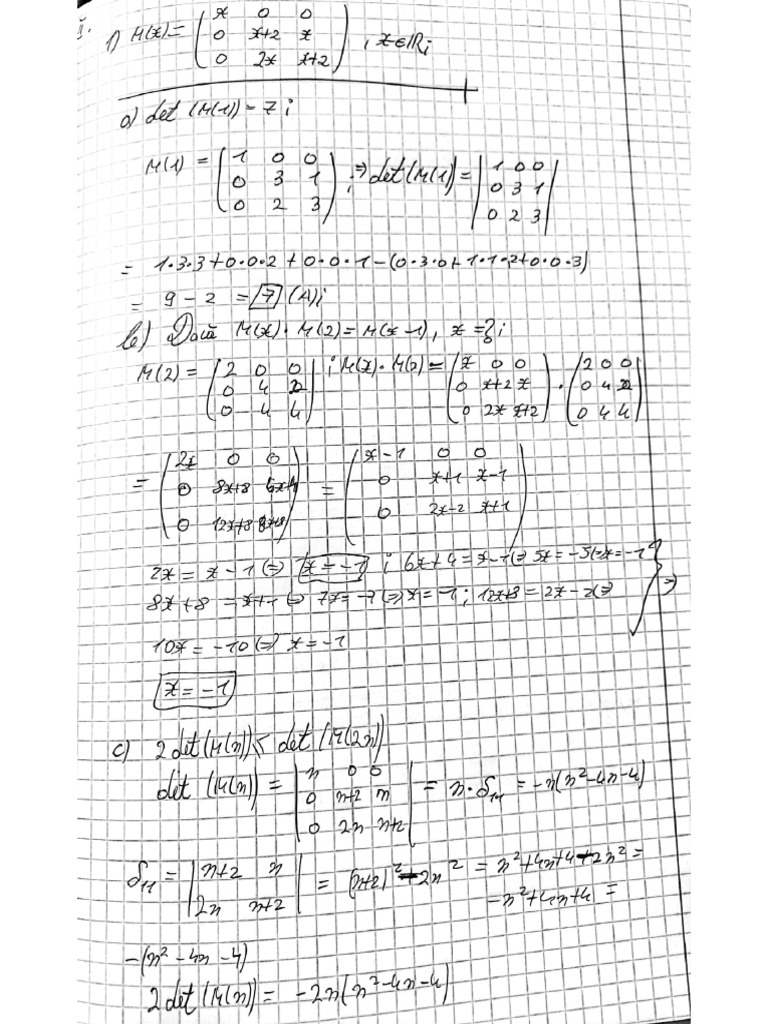 II.
1) M(x) = ( x 0 0
0 x+2 x
0 2x x+2 ) , x∈ℝ;
a) det (M(1)) = 7;
M(1) = ( 1 0 0
0 3 1
0 2 3 ) ; ⇒ det(M(1)) = | 1 0 0
0 3 1
0 2 3 |
= 1·3·3+0·0·2+0·0·1-(0·3·0+1·1·2+0·0·3)
= 9 - 2 = 7 (A);
b) Dacă M(x)·M(2)=M(x-1), x=?;
M(2) = ( 2 0 0
0 4 2
0 4 4 ) ; M(x)·M(2) = ( x 0 0
0 x+2 x
0 2x x+2 ) · ( 2 0 0
0 4 2
0 4 4 )
= ( 2x 0 0
0 8x+8 6x+4
0 12x+8 8x+8 ) = ( x-1 0 0
0 x+1 x-1
0 2x-2 x+1 )
2x = x-1 (=) x=-1 ; 6x+4=x-1(=) 5x=-5(=)x=-1
8x+8 = x+1(=) 7x=-7(=)x=-1; 12x+8=2x-2(=) } ⇒
10x = -10(=) x=-1
x=-1
c) 2det(M(n)) < det(M(2n))
det (M(n)) = | n 0 0
0 n+2 n
0 2n n+2 | = n·δ₁₁ = -n(n²-4n-4)
δ₁₁ = | n+2 n
2n n+2 | = (n+2)²-2n² = n²+4n+4-2n² =
-n²+4n+4 =
-(n²-4n-4)
2det(M(n)) = -2n(n²-4n-4)